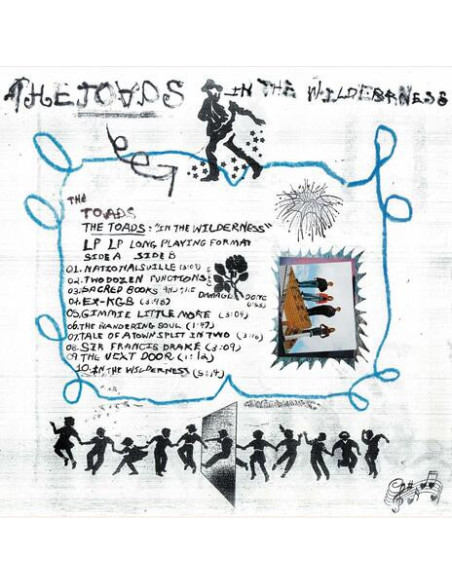 THE TOADS IN THE WILDERNESS
THE
TOADS
THE TOADS: "IN THE WILDERNESS"
LP LP LONG PLAYING FORMAT
SIDE A SIDE B
01. NATIONALSVILLE
02. TWO DOZEN FUNCTIONS
03. SACRED BOOKS AND THE
04. EX-KGB (3:48)
05. GIMMIE LITTLE MORE (3:09)
06. THE WANDERING SOUL (1:47)
07. TALE OF A TOWN SPLIT IN TWO (3:10)
08. SIR FRANCIS DRAKE (3:09)
09. THE NEXT DOOR (1:12)
10. IN THE WILDERNESS (5:14)